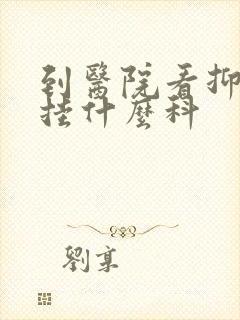 到醫院看抑
挂什麼科
劉享